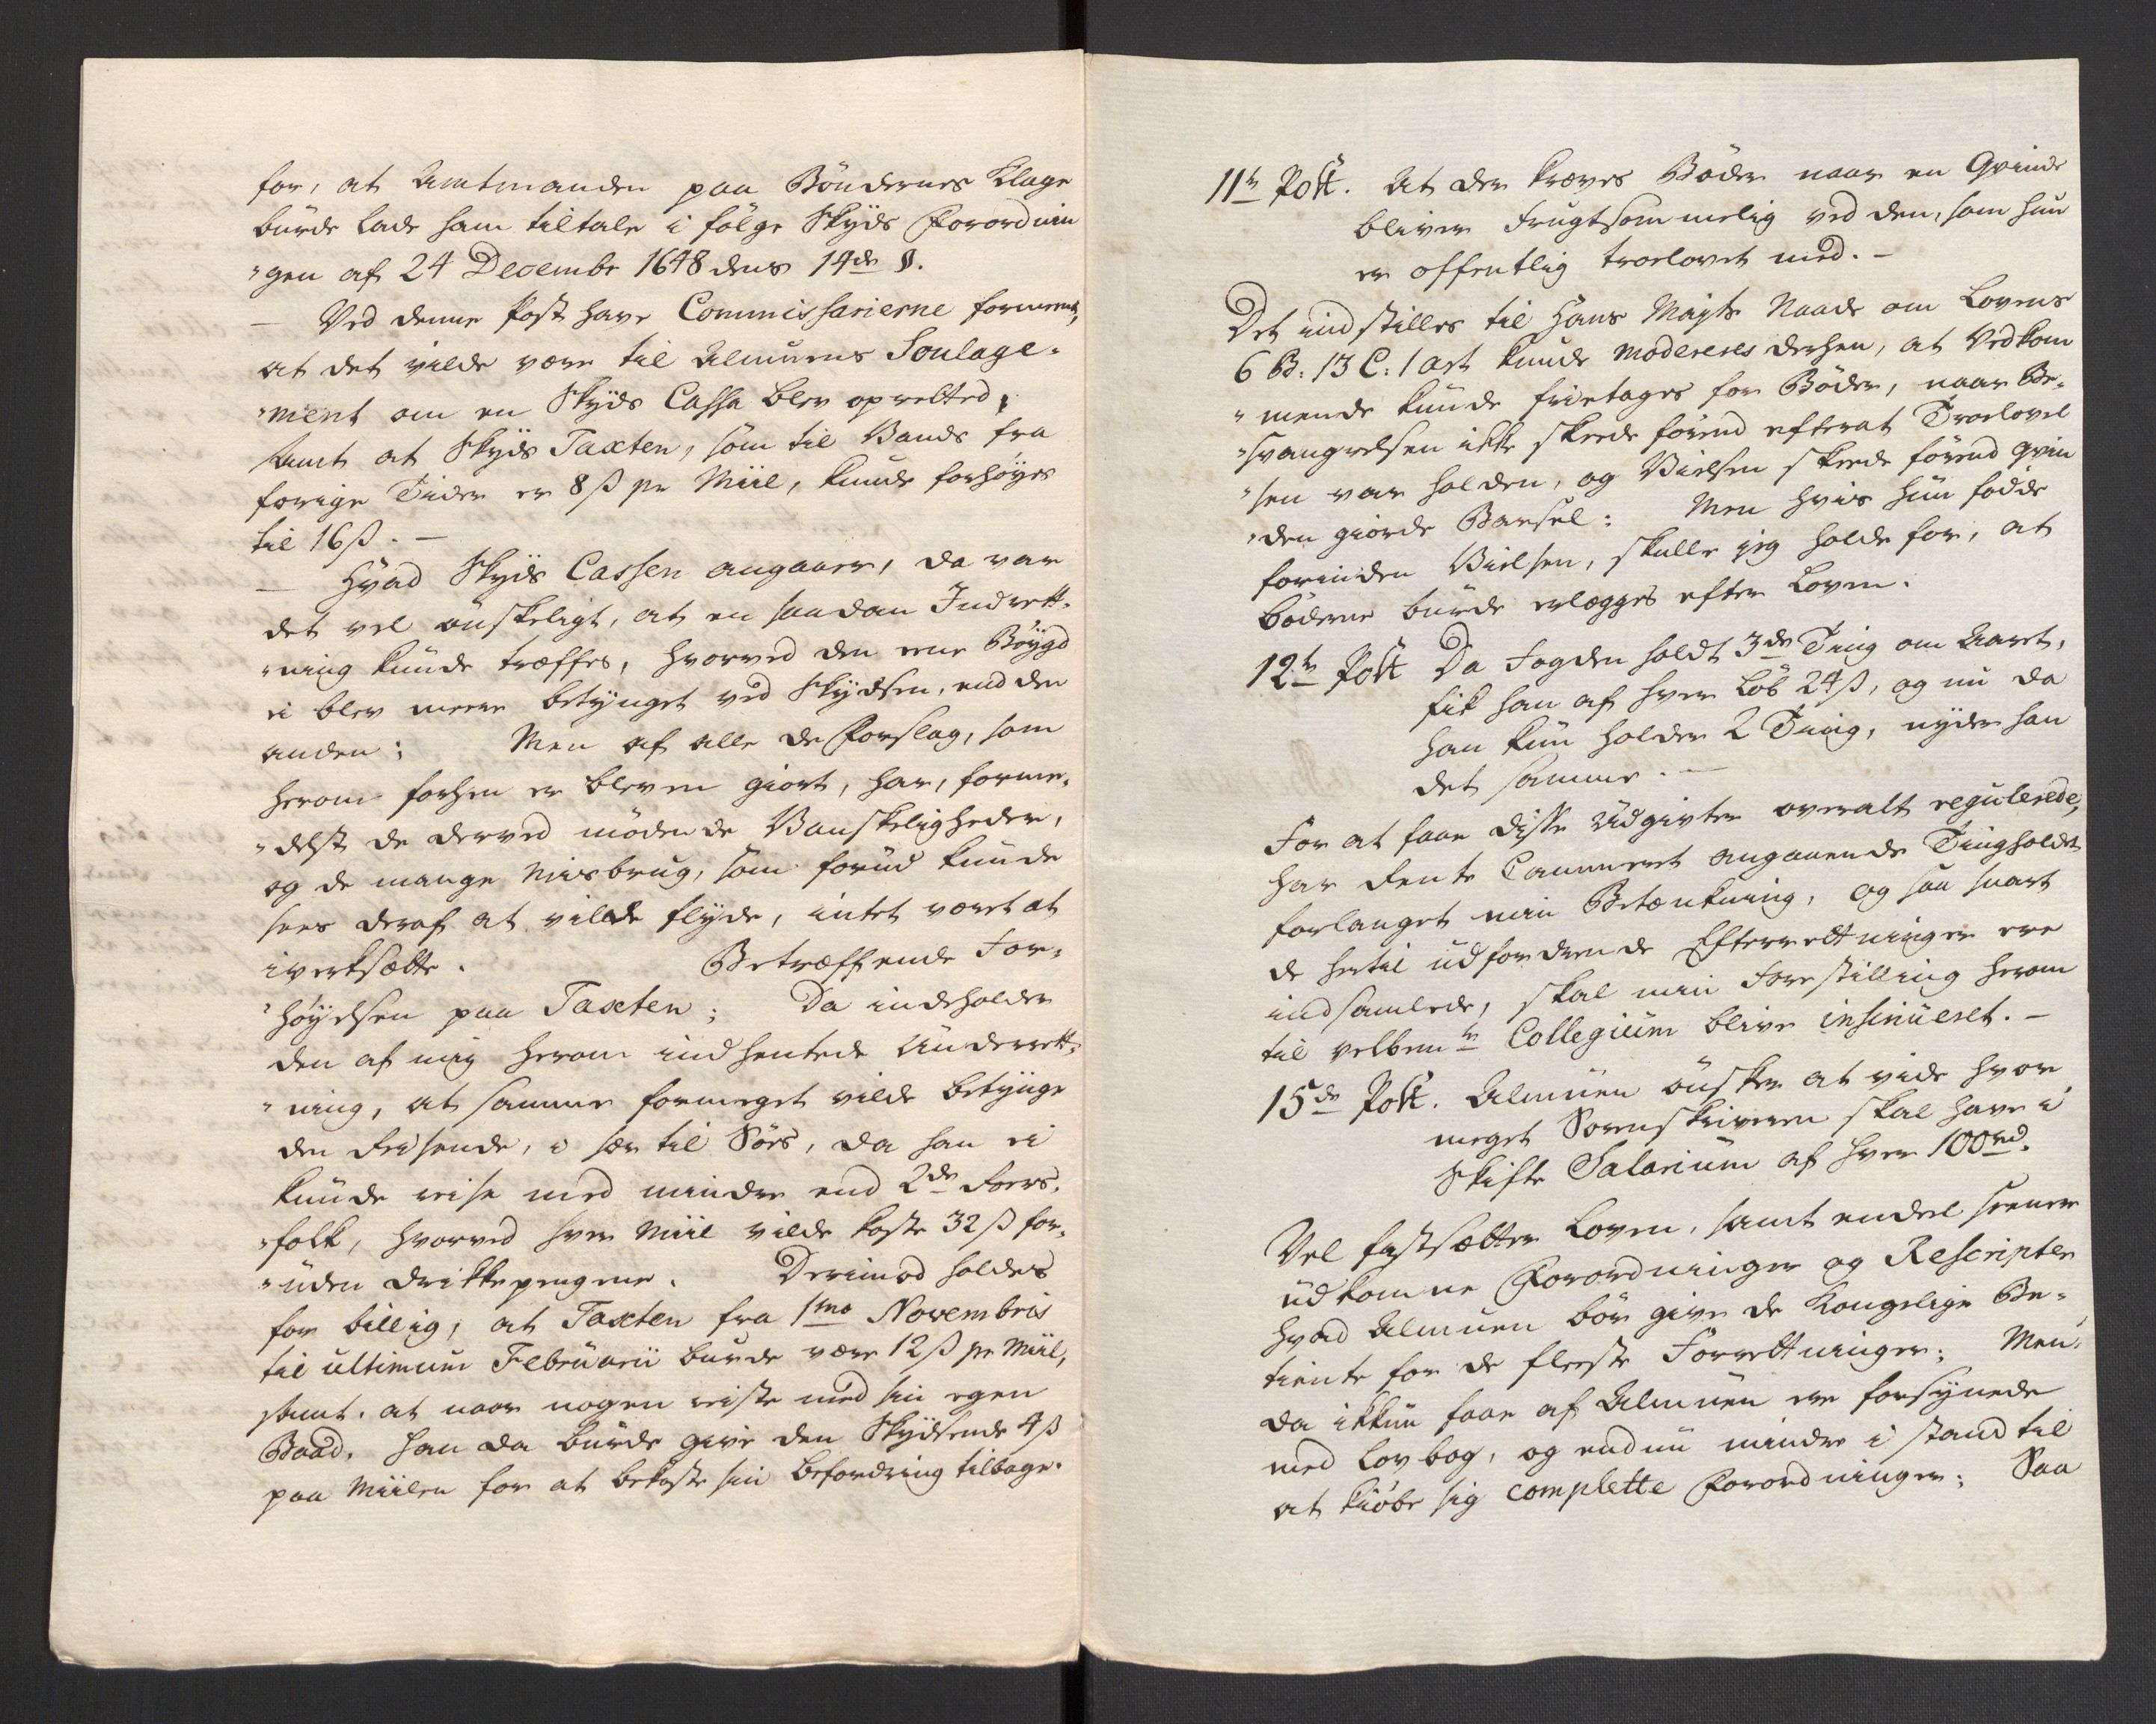 for, at Amtmanden paa Bøndernes Klage
burde lade ham tiltale i følge Skyds Forordnin
"gen af 24 Decembr 1648 dens 14de §.
— Ved denne Post have Commissarierne formeent,
at det vilde være til Almuens Soulage-
"ment om en Skyds Cassa blev opretted,
samt at Skyds Taxten, som til Vands fra
forige Tider er 8 ß pr Miil, kunde forhøyes
til 16 ß. —
— Hvad Skyds Cassen angaaer, da var
det vel ønskeligt, at en saadan Indrett-
"ning kunde træffes, hvorved den eene Bøygd
ei blev meere betynget ved Skydsen, end den
anden; Men af alle de Forslag, som
herom forhen er bleven giort, har, forme-
"delst de derved mødende Vanskeligheder,
og de mange Misbrug, som forud kunde
sees deraf at vilde flyde, intet været at
iverksætte. Betræffende For-
"høyelsen paa Taxten; Da indeholder
den af mig herom indhentede Underrett-
"ning, at samme formeget vilde betynge
den Reisende, i sær til Søes, da han ei
kunde reise med mindre end 2de Roers-
"folk, hvorved hver Miil vilde koste 32 ß for-
"uden Drikkepengene. Derimod holdes
for billig, at Taxten fra 1mo Novembris
til ultimum Februarii burde være 12 ß pr Miil,
samt, at naar nogen reiste med sin egen
Baad, han da burde give den Skydsende 4 ß
paa Miilen for at bekoste sin Befordring tilbage.
11te Post. At der kræves Bøder naar en Qvinde
bliver Frugtsommelig ved den, som hun
er offentlig troelovet med. —
Det indstilles til Hans Mayts Naade om Lovens
6 B: 13 C: 1 art kunde modereres derhen, at Vedkom
"mende kunde fritages for Bøder, naar Be-
"svangrelsen ikke skeede førend efterat Troelovel
"sen var holden, og Vielsen skeede førend Qvin
"den giorde Barsel: Men hvis hun fødde
forinden Vielsen, skulle jeg holde for, at
Bøderne burde erlægges efter Loven.
12te Post Da Fogden holdt 3de Ting om Aaret,
fik han af hver Løb 24 ß, og nu da
han kun holder 2 Ting, nyder han
det samme. —
For at faae disse Udgivter overalt regulerede,
har Rente Cammeret angaaende Tingholdet
forlanget min Betænkning, og saa snart
de hertil udfordrende Efterrettninger ere
indsamlede, skal min Forestilling herom
til velbemte Collegium blive insinueret. —
15de Post. Almuen ønsker at vide hvor
meget Sorenskriveren skal have i
Skifte Salarium af hver 100rd.
Vel fastsætter Loven, samt endeel seenere
udkomne Forordninger og Rescripter
hvad Almuen bør give de Kongelige Be-
tiente for de fleeste Forrettninger; Men
da ikkun faae af Almuen ere forsynede
med Lovbog, og endnu mindre i stand til
at kiøbe sig complette Forordninger; Saa